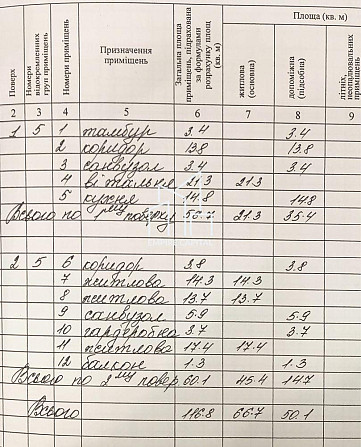 Площа (кв. м)
Поверх
Номери відокремлених груп приміщень
Номери приміщень
Призначення приміщень
Загальна площа приміщень, підрахована за формулами розрахунку площ (кв. м)
житлова (основна)
допоміжна (підсобна)
літніх, неопалювальних приміщень
2 3 4 5 6 7 8 9
1 5 1 тамбур 3.4 3.4
2 коридор 13.8 13.8
3 санвузол 3.4 3.4
4 вітальня 21.3 21.3
5 кухня 14.8 14.8
Всього по 1му поверху 56.7 21.3 35.4
2 5 6 коридор 3.8 3.8
7 житлова 14.3 14.3
8 житлова 13.7 13.7
9 санвузол 5.9 5.9
10 гардеробна 3.7 3.7
11 житлова 17.4 17.4
12 балкон 1.3 1.3
Всього по 2му повер 60.1 45.4 14.7
Всього 116.8 66.7 50.1